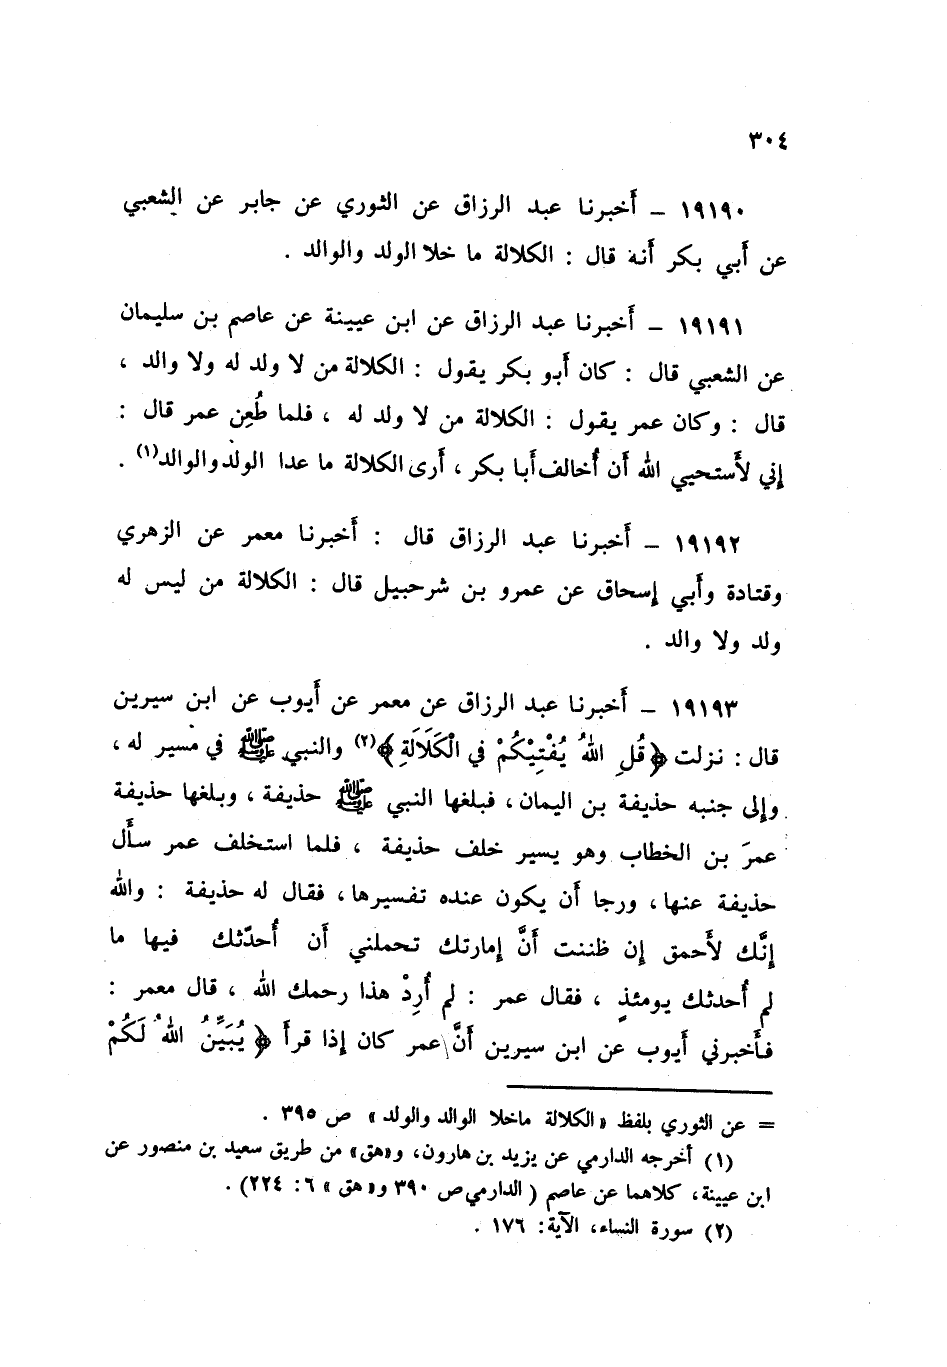 ٣٠٤
١٩١٩٠ ــ أَخبرنا عبد الرزاق عن الثوري عن جابر عن الشعبي
عن أَبي بكر أَنه قال : الكلالة ما خلا الولد والوالد .
١٩١٩١ ــ أَخبرنا عبد الرزاق عن ابن عيينة عن عاصم بن سليمان
عن الشعبي قال : كان أَبو بكر يقول : الكلالة من لا ولد له ولا والد ،
قال : وكان عمر يقول : الكلالة من لا ولد له ، فلما طُعِن عمر قال :
إني لأَستحيي الله أَن أُخالف أَبا بكر ، أَرى الكلالة ما عدا الولد والوالد(١) .
١٩١٩٢ ــ أَخبرنا عبد الرزاق قال : أَخبرنا معمر عن الزهري
وقتادة وأَبي إسحاق عن عمرو بن شرحبيل قال : الكلالة من ليس له
ولد ولا والد .
١٩١٩٣ ــ أَخبرنا عبد الرزاق عن معمر عن أَيوب عن ابن سيرين
قال : نزلت ﴿قُلِ اللهُ يُفْتِيْكُمْ في الْكَلَالَةِ﴾(٢) والنبي ﷺ في مسير له ،
وإلى جنبه حذيفة بن اليمان ، فبلغها النبي ﷺ حذيفة ، وبلغها حذيفة
عمرَ بن الخطاب وهو يسير خلف حذيفة ، فلما استخلف عمر سأَل
حذيفة عنها ، ورجا أَن يكون عنده تفسيرها ، فقال له حذيفة : والله
إنَّك لأَحمق إن ظننت أَنَّ إمارتك تحملني أَن أُحدّثك فيها ما
لم أُحدثك يومئذٍ ، فقال عمر : لم أُرِدْ هذا رحمك الله ، قال معمر :
فأَخبرني أَيوب عن ابن سيرين أَنَّ عمر كان إذا قرأَ ﴿يُبَيِّنُ اللهُ لَكُمْ
= عن الثوري بلفظ «الكلالة ماخلا الوالد والولد» ص ٣٩٥ .
(١) أخرجه الدارمي عن يزيد بن هارون، و«هق» من طريق سعيد بن منصور عن
ابن عيينة، كلاهما عن عاصم (الدارمي ص ٣٩٠ و«هق» ٦: ٢٢٤).
(٢) سورة النساء، الآية: ١٧٦ .